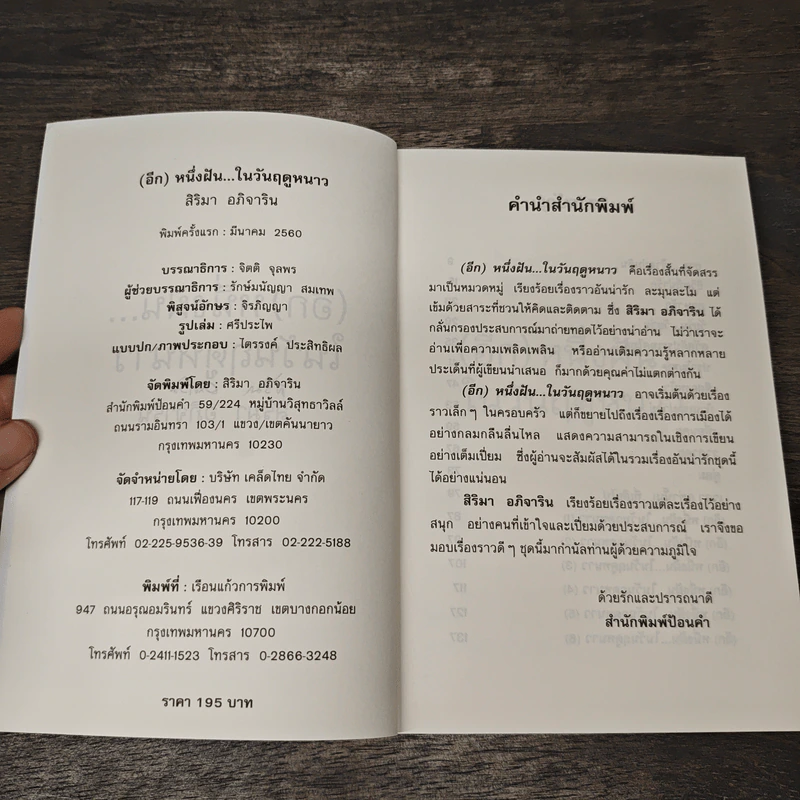 (อีก) หนึ่งฝัน...ในวันฤดูหนาว
สิริมา อภิจาริน
พิมพ์ครั้งแรก : มีนาคม 2560
บรรณาธิการ : จิตติ จุลพร
ผู้ช่วยบรรณาธิการ : รักษ์มนัญญา สมเทพ
พิสูจน์อักษร : จิรภิญญา
รูปเล่ม : ศรีประไพ
แบบปก/ภาพประกอบ : ไตรรงค์ ประสิทธิผล
จัดพิมพ์โดย : สิริมา อภิจาริน
สำนักพิมพ์ป้อนคำ 59/224 หมู่บ้านวิสุทธาวิลล์
ถนนรามอินทรา 103/1 แขวง/เขตคันนายาว
กรุงเทพมหานคร 10230
จัดจำหน่ายโดย : บริษัท เคล็ดไทย จำกัด
117-119 ถนนเฟื่องนคร เขตพระนคร
กรุงเทพมหานคร 10200
โทรศัพท์ 02-225-9536-39 โทรสาร 02-222-5188
พิมพ์ที่ : เรือนแก้วการพิมพ์
947 ถนนอรุณอมรินทร์ แขวงศิริราช เขตบางกอกน้อย
กรุงเทพมหานคร 10700
โทรศัพท์ 0-2411-1523 โทรสาร 0-2866-3248
ราคา 195 บาท
คำนำสำนักพิมพ์
(อีก) หนึ่งฝัน...ในวันฤดูหนาว คือเรื่องสั้นที่จัดสรร
มาเป็นหมวดหมู่ เรียงร้อยเรื่องราวอันน่ารัก ละมุนละไม แต่
เข้มด้วยสาระที่ชวนให้คิดและติดตาม ซึ่ง สิริมา อภิจาริน ได้
กลั่นกรองประสบการณ์มาถ่ายทอดไว้อย่างน่าอ่าน ไม่ว่าเราจะ
อ่านเพื่อความเพลิดเพลิน หรืออ่านเติมความรู้หลากหลาย
ประเด็นที่ผู้เขียนนำเสนอ ก็มากด้วยคุณค่าไม่แตกต่างกัน
(อีก) หนึ่งฝัน...ในวันฤดูหนาว อาจเริ่มต้นด้วยเรื่อง
ราวเล็ก ๆ ในครอบครัว แต่ก็ขยายไปถึงเรื่องเรื่องการเมืองได้
อย่างกลมกลืนลื่นไหล แสดงความสามารถในเชิงการเขียน
อย่างเต็มเปี่ยม ซึ่งผู้อ่านจะสัมผัสได้ในรวมเรื่องอันน่ารักชุดนี้
ได้อย่างแน่นอน
สิริมา อภิจาริน เรียงร้อยเรื่องราวแต่ละเรื่องไว้อย่าง
สนุก อย่างคนที่เข้าใจและเปี่ยมด้วยประสบการณ์ เราจึงขอ
มอบเรื่องราวดี ๆ ชุดนี้มากำนัลท่านผู้ด้วยความภูมิใจ
ด้วยรักและปรารถนาดี
สำนักพิมพ์ป้อนคำ